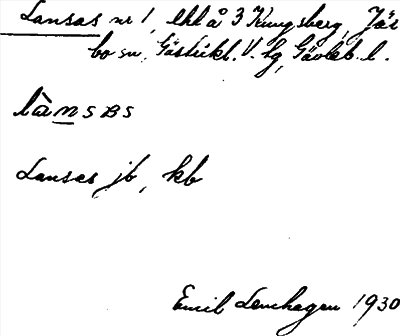 Lansas nr 1, lht å 3 Kungsberg, Jär
bo sn, Gästrikl. V. hg, Gävleb. l.
lànsas
Lansas jb, kb
Emil Lenhagen 1930